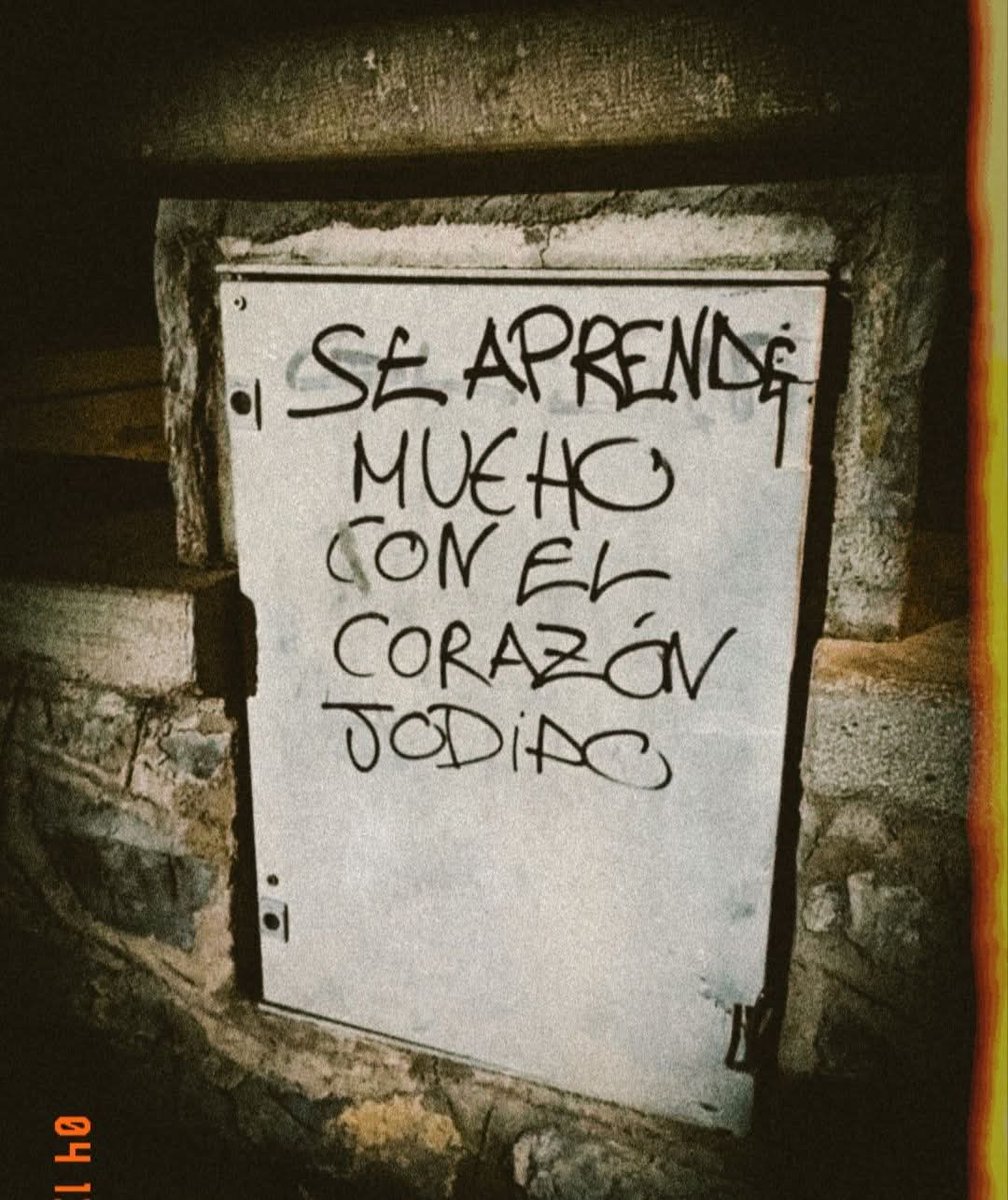 SE APRENDE
MUCHO
CON EL
CORAZÓN
JODIDO